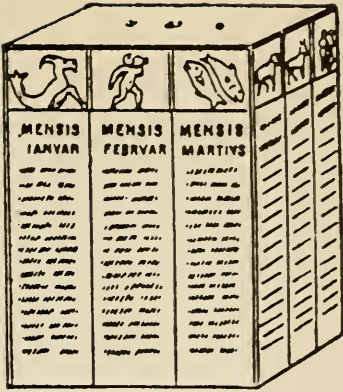 MENSIS
IANVAR
MENSIS
FEBRVAR
MENSIS
MARTIVS